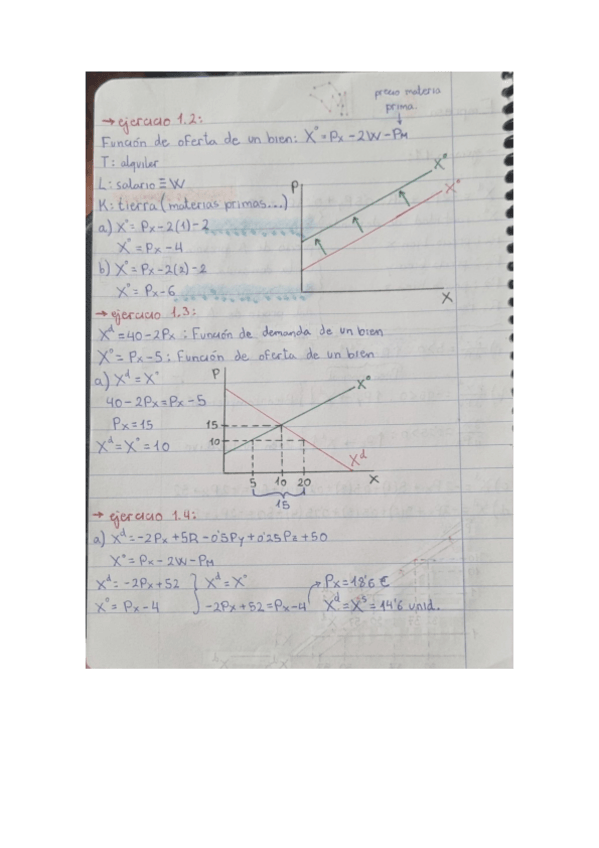 precio materia
prima.
→ ejercicio 1.2:
Función de oferta de un bien: X° = Px - 2W - PM
T: alquiler
L: salario ≡ W
K: tierra (materias primas...)
a) X° = Px - 2(1) - 2
X° = Px - 4
b) X° = Px - 2(2) - 2
X° = Px - 6
P
X°
X°
X
→ ejercicio 1.3:
Xd = 40 - 2Px : Función de demanda de un bien
X° = Px - 5 : Función de oferta de un bien
a) Xd = X°
40 - 2Px = Px - 5
Px = 15
Xd = X° = 10
P
X°
15
10
Xd
X
5 10 20
15
→ ejercicio 1.4:
a) Xd = -2Px + 5R - 0'5Py + 0'25Pz + 50
X° = Px - 2W - PM
Xd = -2Px + 52 } Xd = X° → Px = 18'6 €
X° = Px - 4 } -2Px + 52 = Px - 4 Xd = Xs = 14'6 unid.